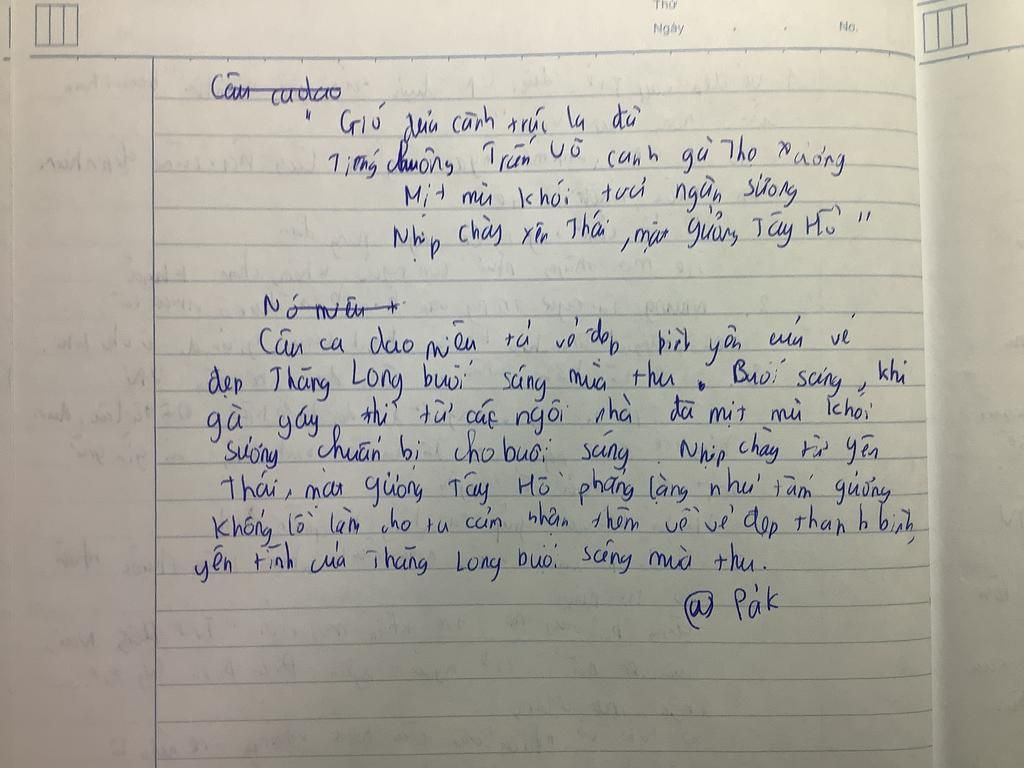 Thứ
Ngày . . No.
Câu ca dao
" Gió đưa cành trúc la đà
Tiếng chuông Trấn Võ canh gà Thọ Xương
Mịt mù khói tưới ngàn sương
Nhịp chày Yên Thái, mặt gương Tây Hồ "
Nó miêu t
Câu ca dao miêu tả vẻ đẹp bình yên của vẻ
đẹp Thăng Long buổi sáng mùa thu. Buổi sáng, khi
gà gáy thì từ các ngôi nhà đã mịt mù khói
sương chuẩn bị cho buổi sáng. Nhịp chày từ Yên
Thái, mặt gương Tây Hồ phẳng lặng như tấm gương
khổng lồ làm cho ta cảm nhận thêm về vẻ đẹp thanh bình,
yên tĩnh của Thăng Long buổi sáng mùa thu.
@ Pảk